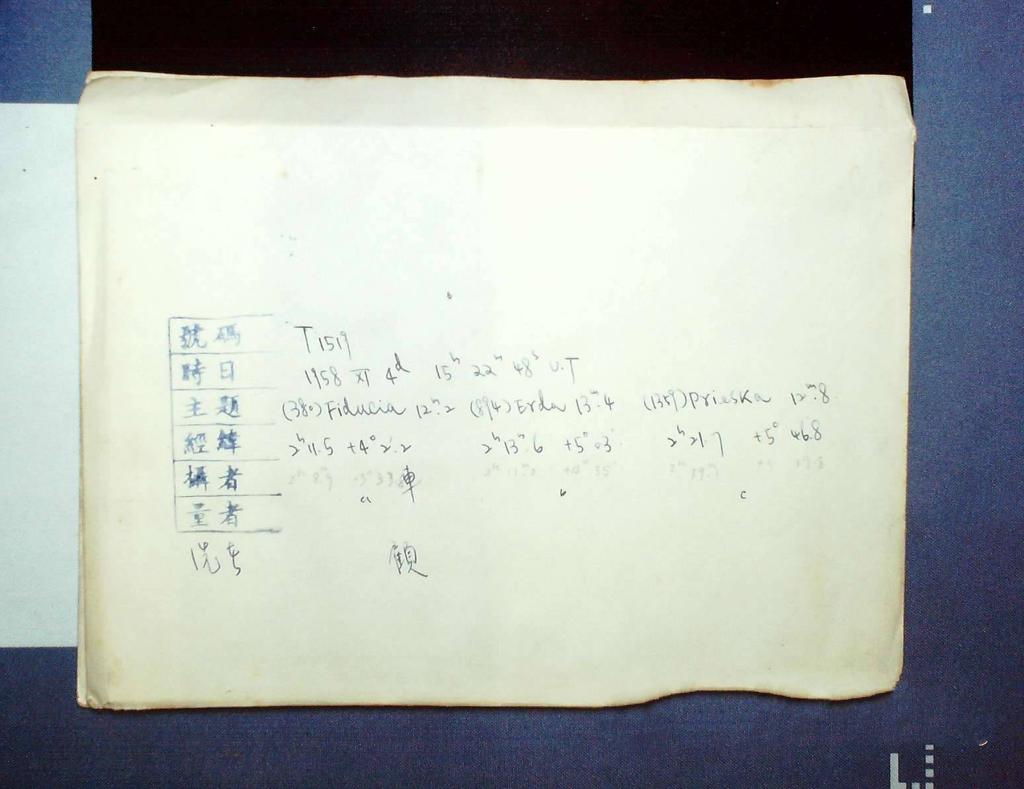 號碼 T1519
時日 1958 XI 4d 15h 22m 48s U.T
主題 (380)Fiducia 12m.2 (894)Erda 13m.4 (1359)Prieska 12m.8
經緯 2h11.5 +4°2.2 2h13m.6 +5°.03' 2h21.7 +5° 46.8
攝者 車
a b c
量者
洗者 顧